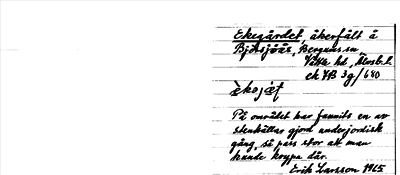 Ekegärdet, åkerfält å
Björsjöås, Bergums sn
Vättle hd, Älvsb. l.
ek YB 3g/680
På området har funnits en av
stenhällar gjord underjordisk
gång, så pass stor att man
kunde krypa där.
Erik Larsson 1965